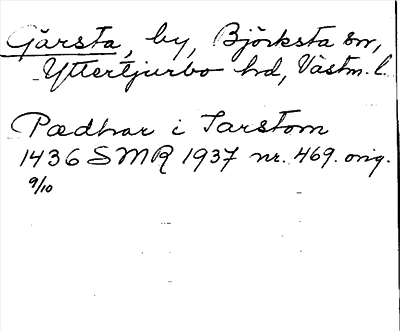 Gärsta, by, Björksta sn,
Yttertjurbo hd, Västm. l.
Pædhar i Tarstom
1436 SMR 1937 nr. 469. orig.
9/10